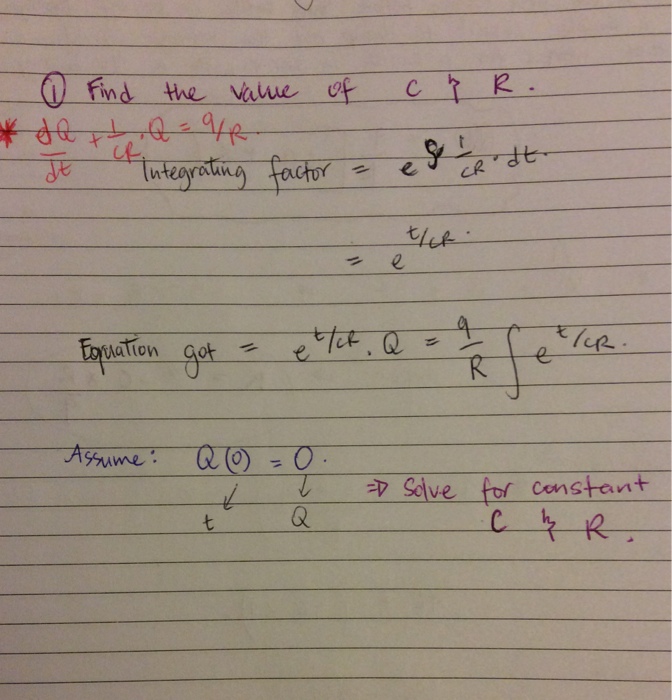 ① Find the value of C & R.
* dQ/dt + 1/CR . Q = 9/R.
Integrating factor = e^∫ 1/CR . dt.
= e^t/CR.
Equation got = e^t/CR . Q = 9/R ∫ e^t/CR.
Assume: Q(0) = 0.
↙ ↓
t Q
⇒ Solve for constant
C & R.